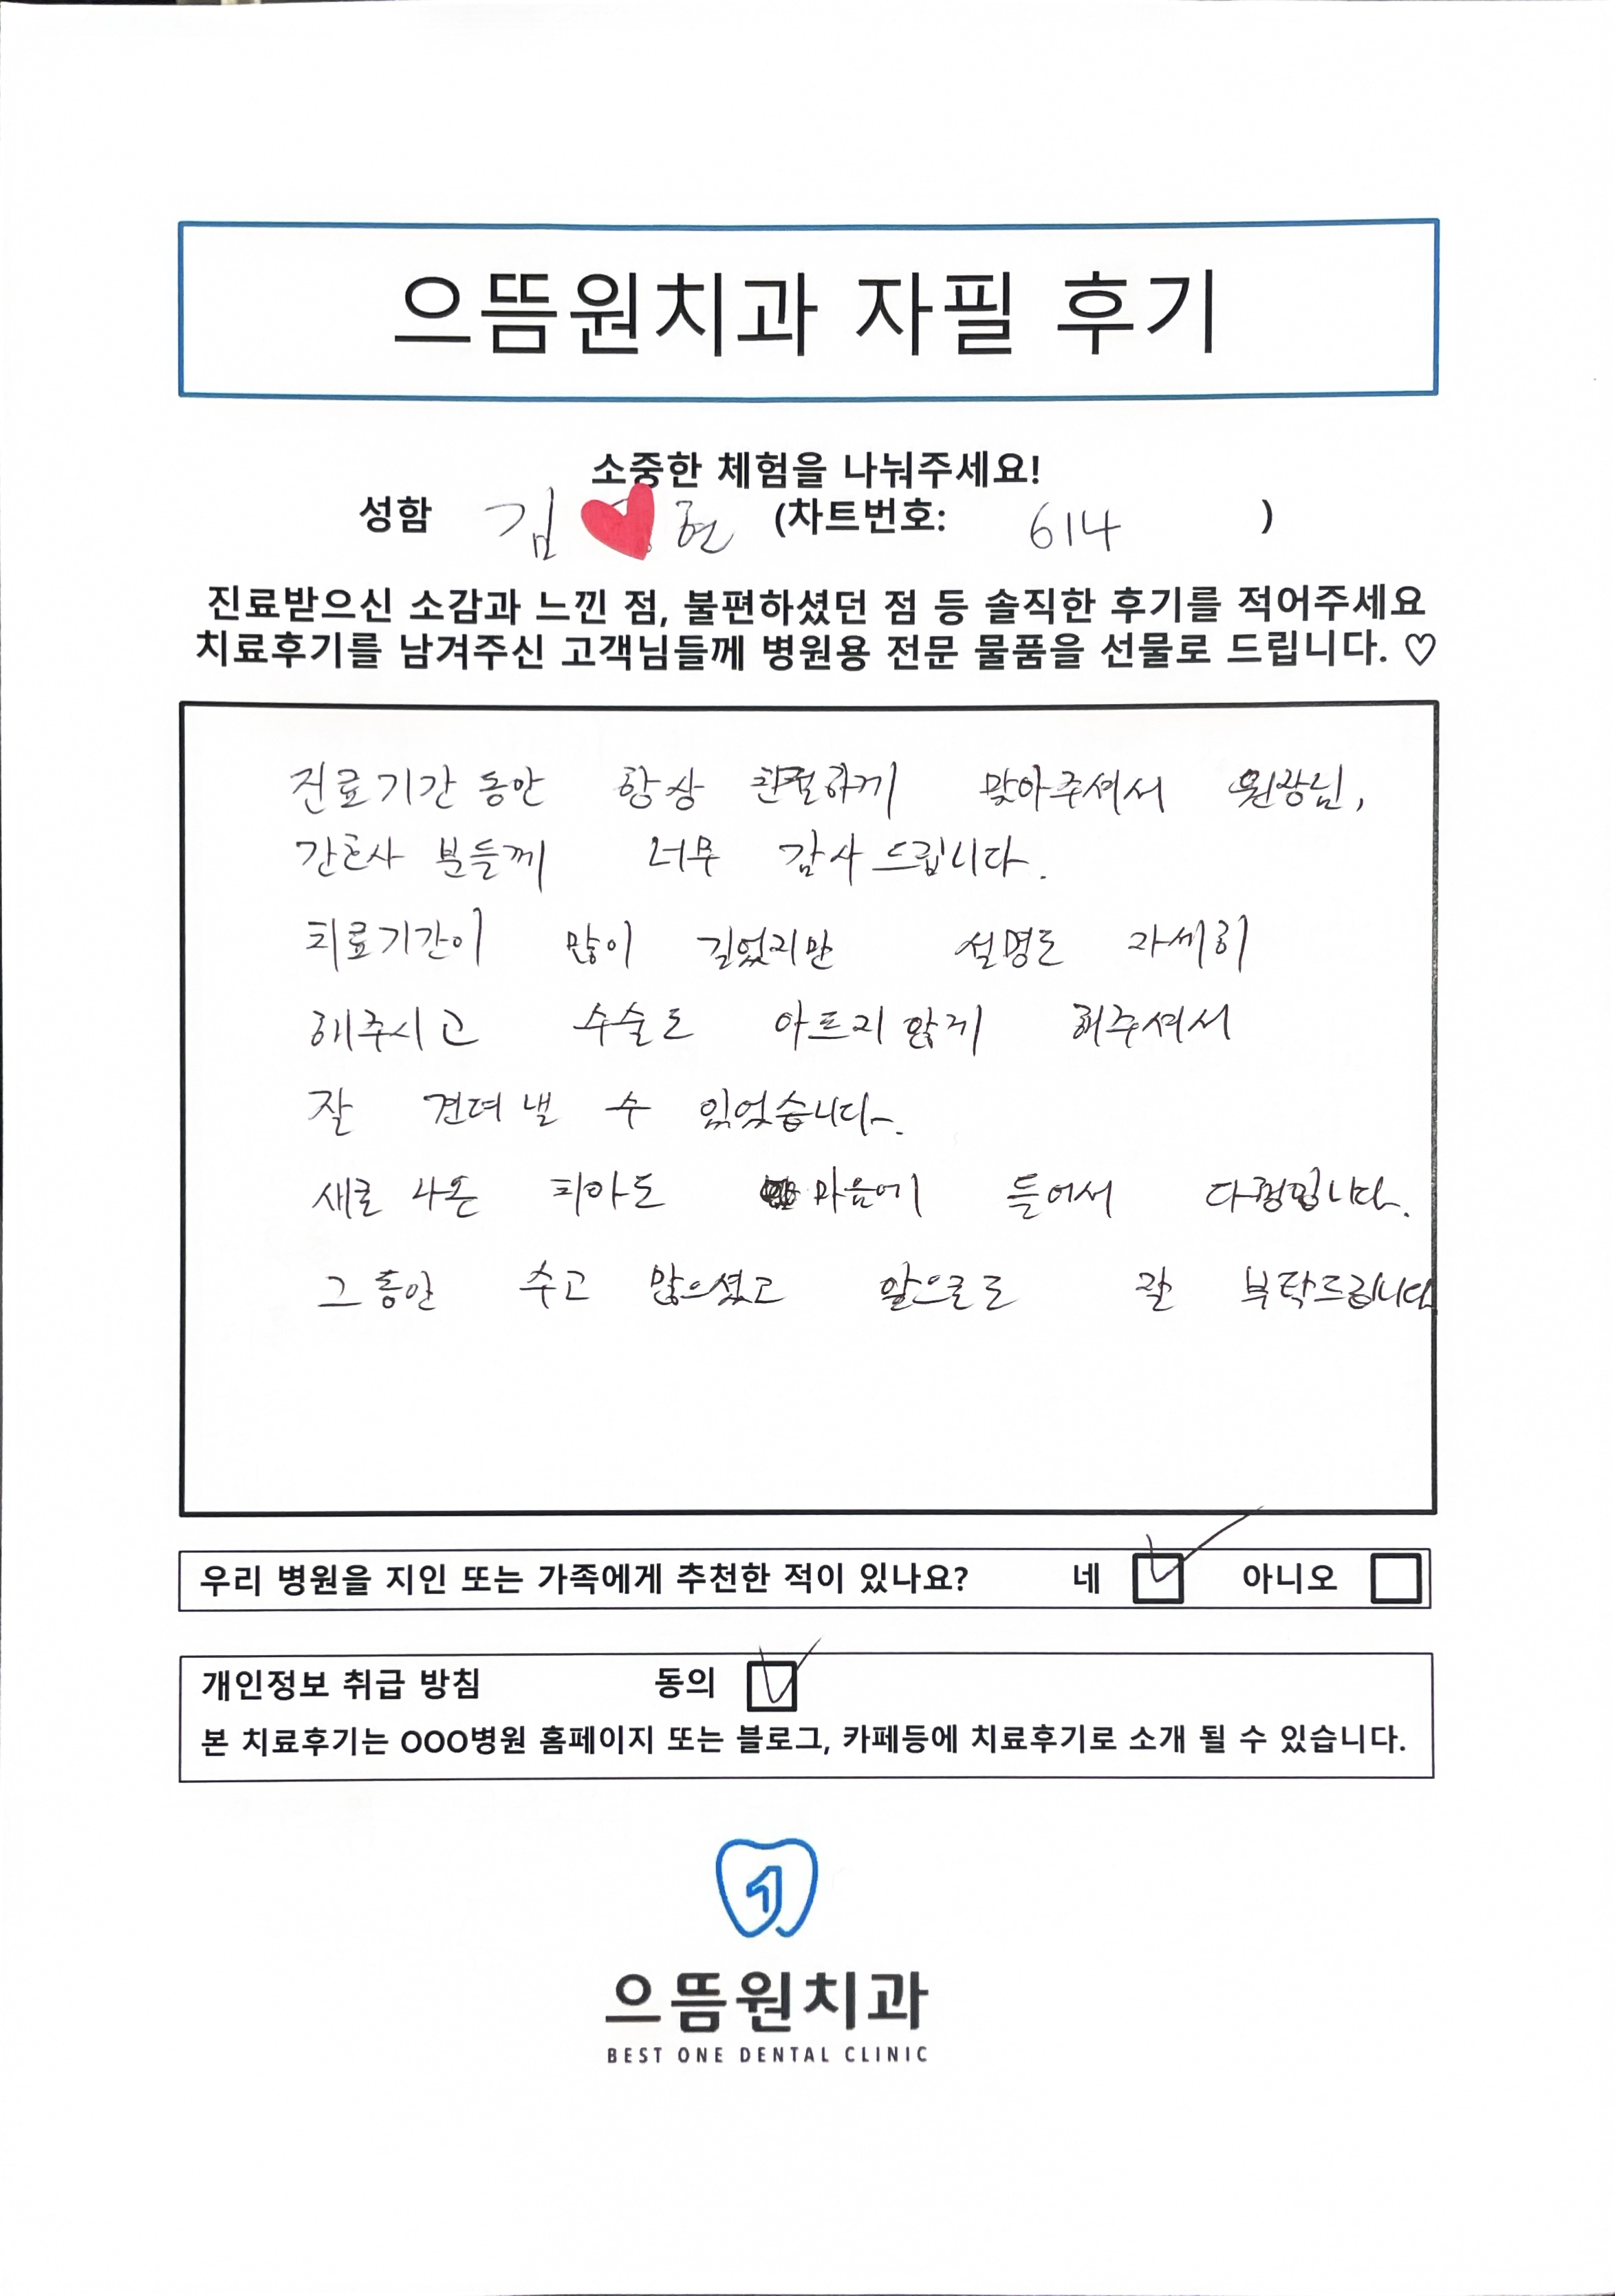 으뜸원치과 자필 후기
소중한 체험을 나눠주세요!
성함 김 현 (차트번호: 614 )
진료받으신 소감과 느낀 점, 불편하셨던 점 등 솔직한 후기를 적어주세요
치료후기를 남겨주신 고객님들께 병원용 전문 물품을 선물로 드립니다. ♡
진료기간 동안 항상 친절하게 맞아주셔서 원장님,
간호사 분들께 너무 감사드립니다.
치료기간이 많이 길었지만 설명도 자세히
해주시고 수술도 아프지 않게 해주셔서
잘 견뎌 낼 수 있었습니다.
새로 나온 치아도 마음에 들어서 다행입니다.
그동안 수고 많으셨고 앞으로도 잘 부탁드립니다
우리 병원을 지인 또는 가족에게 추천한 적이 있나요? 네 아니오
개인정보 취급 방침 동의
본 치료후기는 OOO병원 홈페이지 또는 블로그, 카페등에 치료후기로 소개 될 수 있습니다.
1
으뜸원치과
BEST ONE DENTAL CLINIC